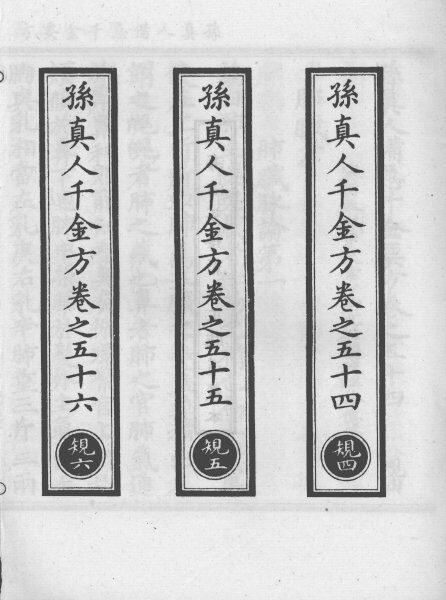 孫真人千金方卷之五十四
規四
孫真人千金方卷之五十五
規五
孫真人千金方卷之五十六
規六